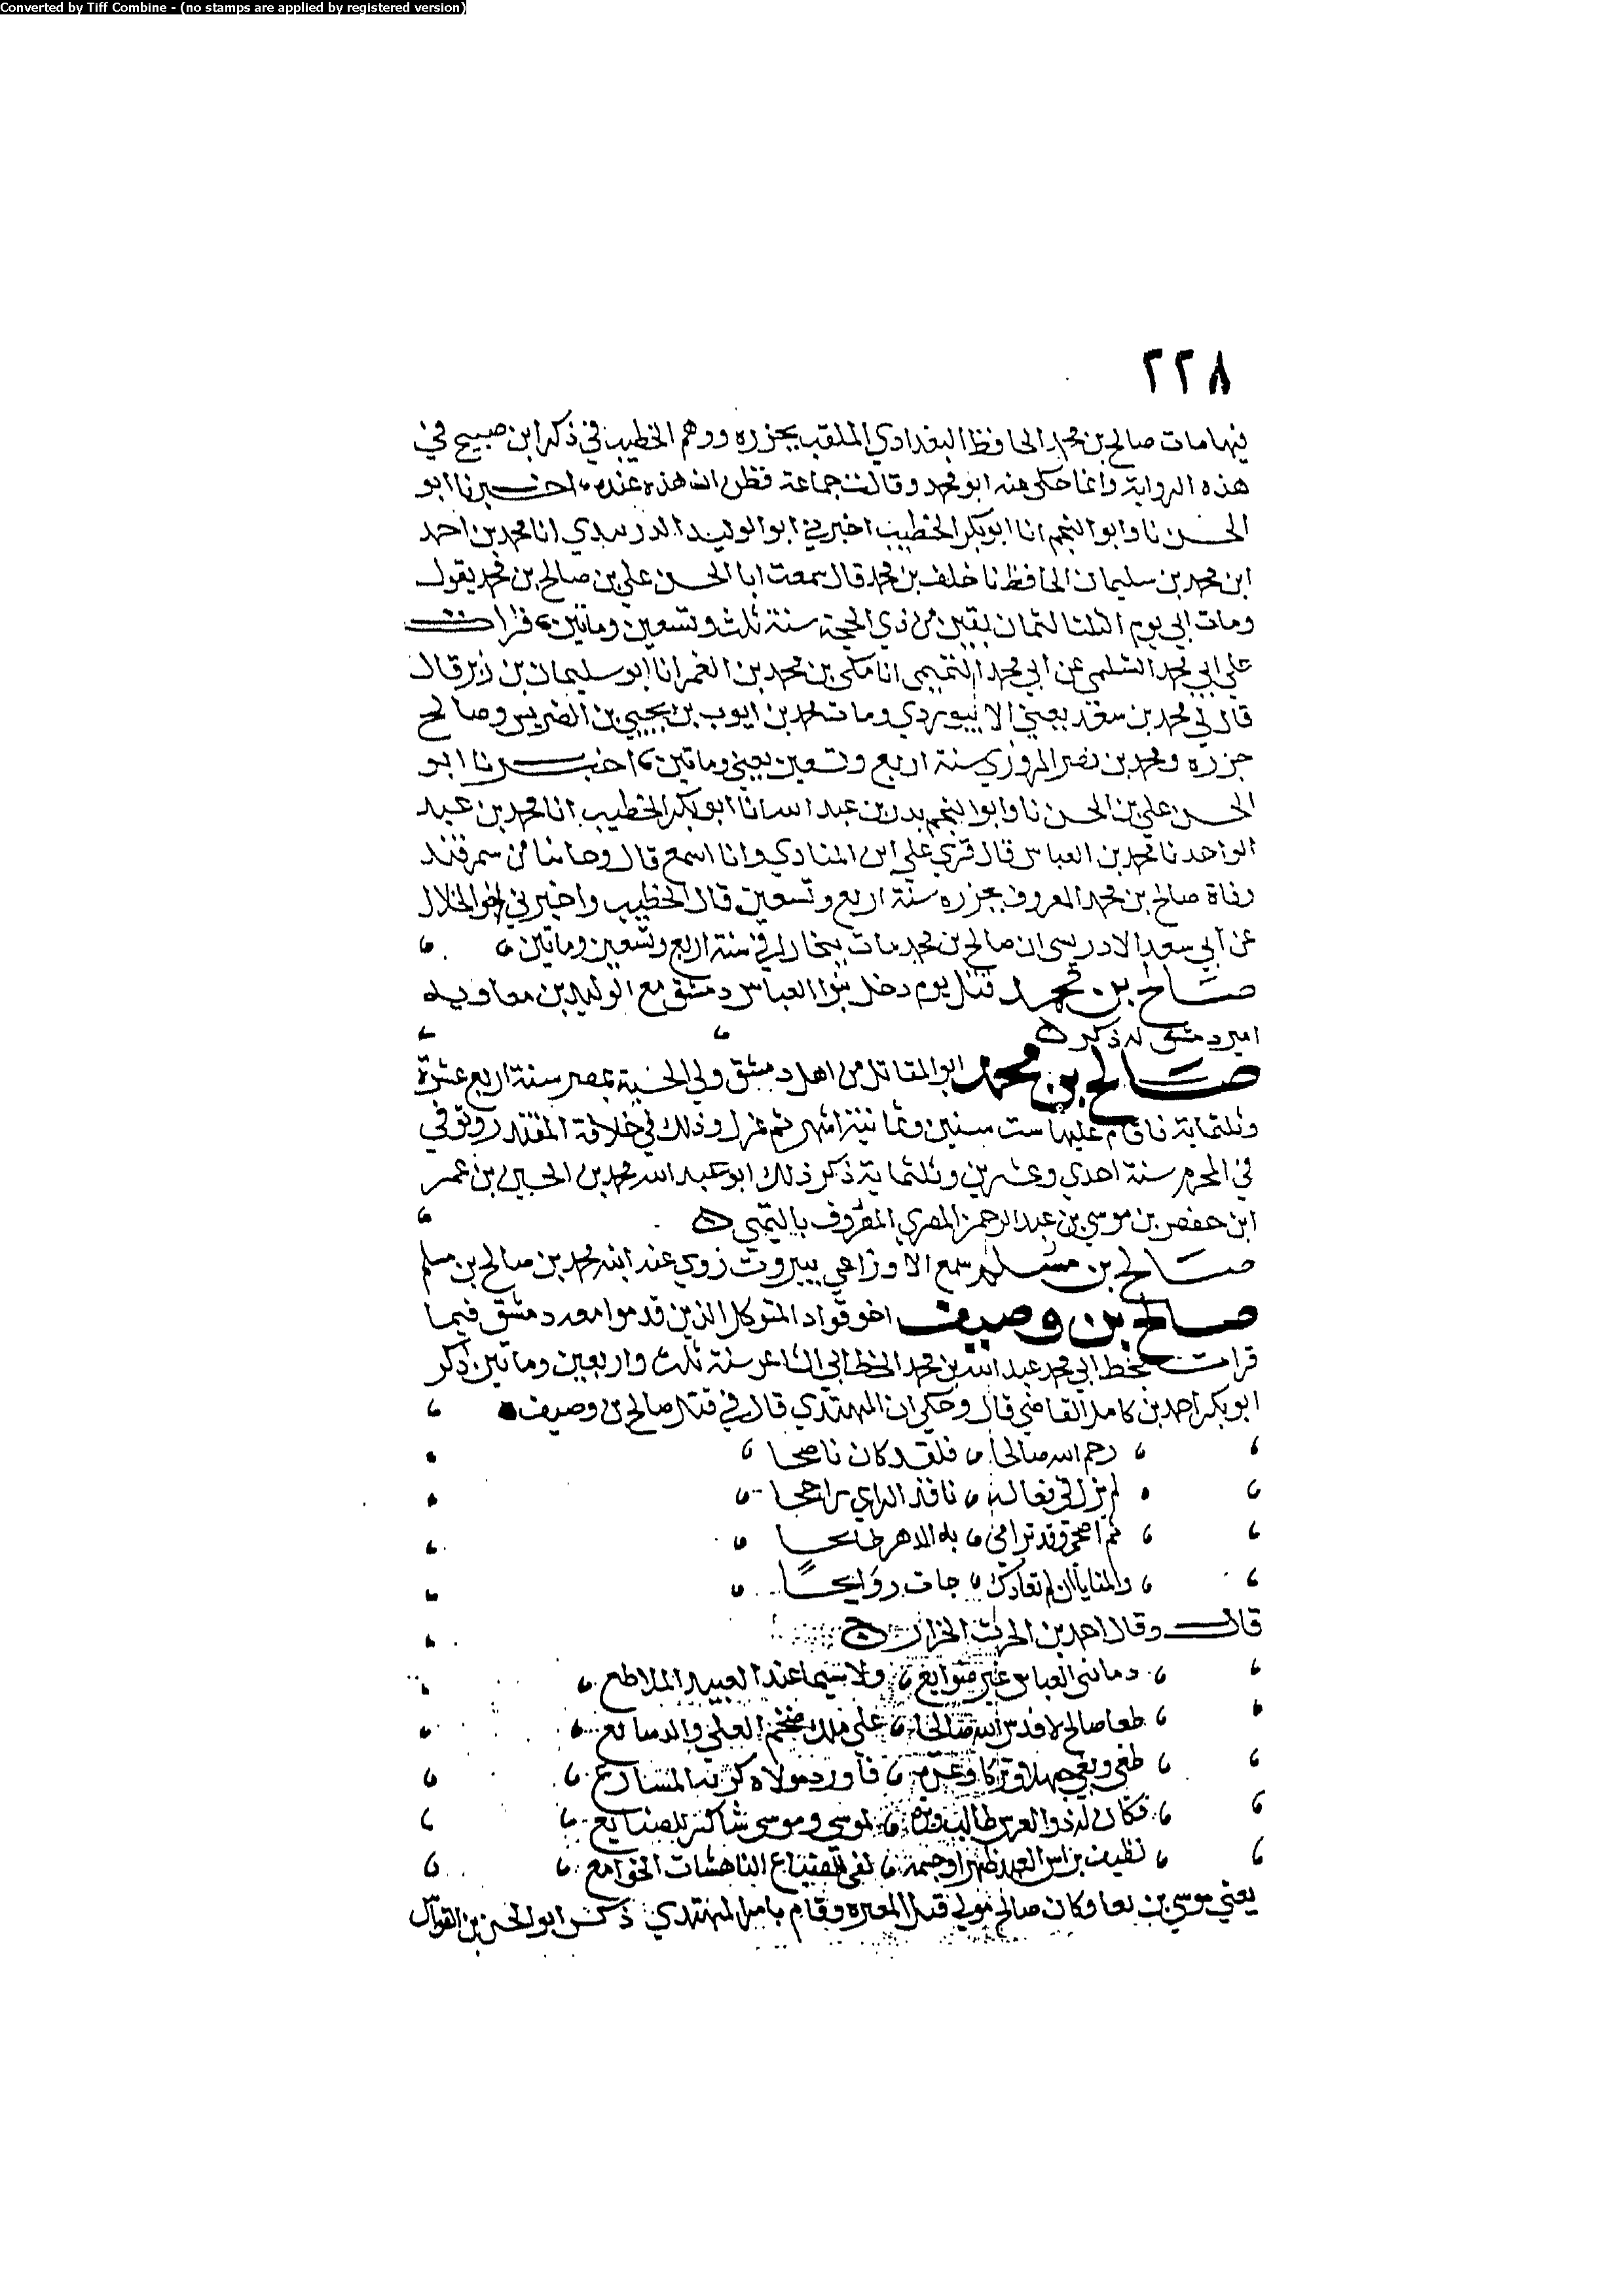 Converted by Tiff Combine - (no stamps are applied by registered version)
٢٢٨
فيها مات صالح بن محمد الحافظ البغدادي الملقب بجزره ووهم الخطيب في ذكر ابن صبيح في
هذه الرواية وانما حكى عنه ابو محمد وقالت جماعة فظن ان هذه عنده اخبرنا ابو
الحسن نا وابو النجم انا ابو بكر الخطيب اخبرني ابو الوليد الدربندي انا محمد بن احمد
ابن محمد بن سليمان الحافظ نا خلف بن محمد قال سمعت ابا الحسن علي بن صالح بن محمد يقول
ومات ابي يوم الثلثا لثمان بقين من ذي الحجة سنة ثلث وتسعين وماتين قرات
علي ابي محمد السلمي عن ابي محمد التميمي انا مكي بن محمد بن الغمر انا ابو سليمان بن زبر قال
قال لي محمد بن سعد يعني الابيوردي ومات محمد بن ايوب بن يحيي بن الضريس وصالح
جزره ومحمد بن نصر المروزي سنة اربع وتسعين يعني وماتين اخبرنا ابو
الحسن علي بن الحسن نا وابو النجم بدر بن عبد الله انا ابو بكر الخطيب انا محمد بن عبد
الواحد نا محمد بن العباس قال قري علي ابن المنادي وانا اسمع قال وجاءنا من سمرقند
وفاة صالح بن محمد المعروف بجزره سنة اربع وتسعين قال الخطيب واخبرني الخلال
عن ابي سعد الادريسي ان صالح بن محمد مات ببخارا في سنة اربع وتسعين وماتين
صالح بن محمد قتل يوم دخل بنوا العباس دمشق مع الوليد بن معاويه
امير دمشق له ذكر
صالح بن محمد ابو المقاتل من اهل دمشق ولي الحسبة بمصر سنة اربع عشرة
وثلثماية فاقام عليها ست سنين وثمانية اشهر ثم عزل وذلك في خلافة المقتدر وتوفي
في المحرم سنة احدي وعشرين وثلثماية ذكر ذلك ابو عبد الله محمد بن الحسين بن عمر
ابن حفص بن موسي بن عبد الرحمن المصري المعروف باليمني
صالح بن مسلم سمع الاوزاعي ببيروت روي عنه ابنه محمد بن صالح بن مسلم
صالح بن وصيف اخو قواد المتوكل الذين قدموا معه دمشق فيما
قرات بخط ابي محمد عبد الله بن محمد الخطابي الشاعر سنة ثلث واربعين وماتين ذكر
ابو بكر احمد بن كامل القاضي قال وحكي ان المهتدي قال في قتل صالح بن وصيف
رحم الله صالحا فلقد كان ناصحا
لم يزل في فعاله نافذ الراي راجحا
ثم اضحى وقد ترامى به الدهر طايحا
والمنايا ان لم تغادك جات روايحا
قال وقال احمد بن الحرث الخزاز
دما بني العباس غير ضوايع ولا سيما عند العبيد الملاطع
طغا صالح لا قدس الله صالحا علي ملك ضخم العلي والدسايع
طغى وبغى جهلا ونوكا وغرة فاورد مولاه كريه المشارع
فكان له ذو العرش طالب وتره لموسى وموسى شاكر للصنايع
لفى للضباع الناهشات الخوامع
يعني موسي بن بغا وكان صالح تولي قتل المعتز وقام بامر المهتدي ذكر ابو الحسن بن القواس